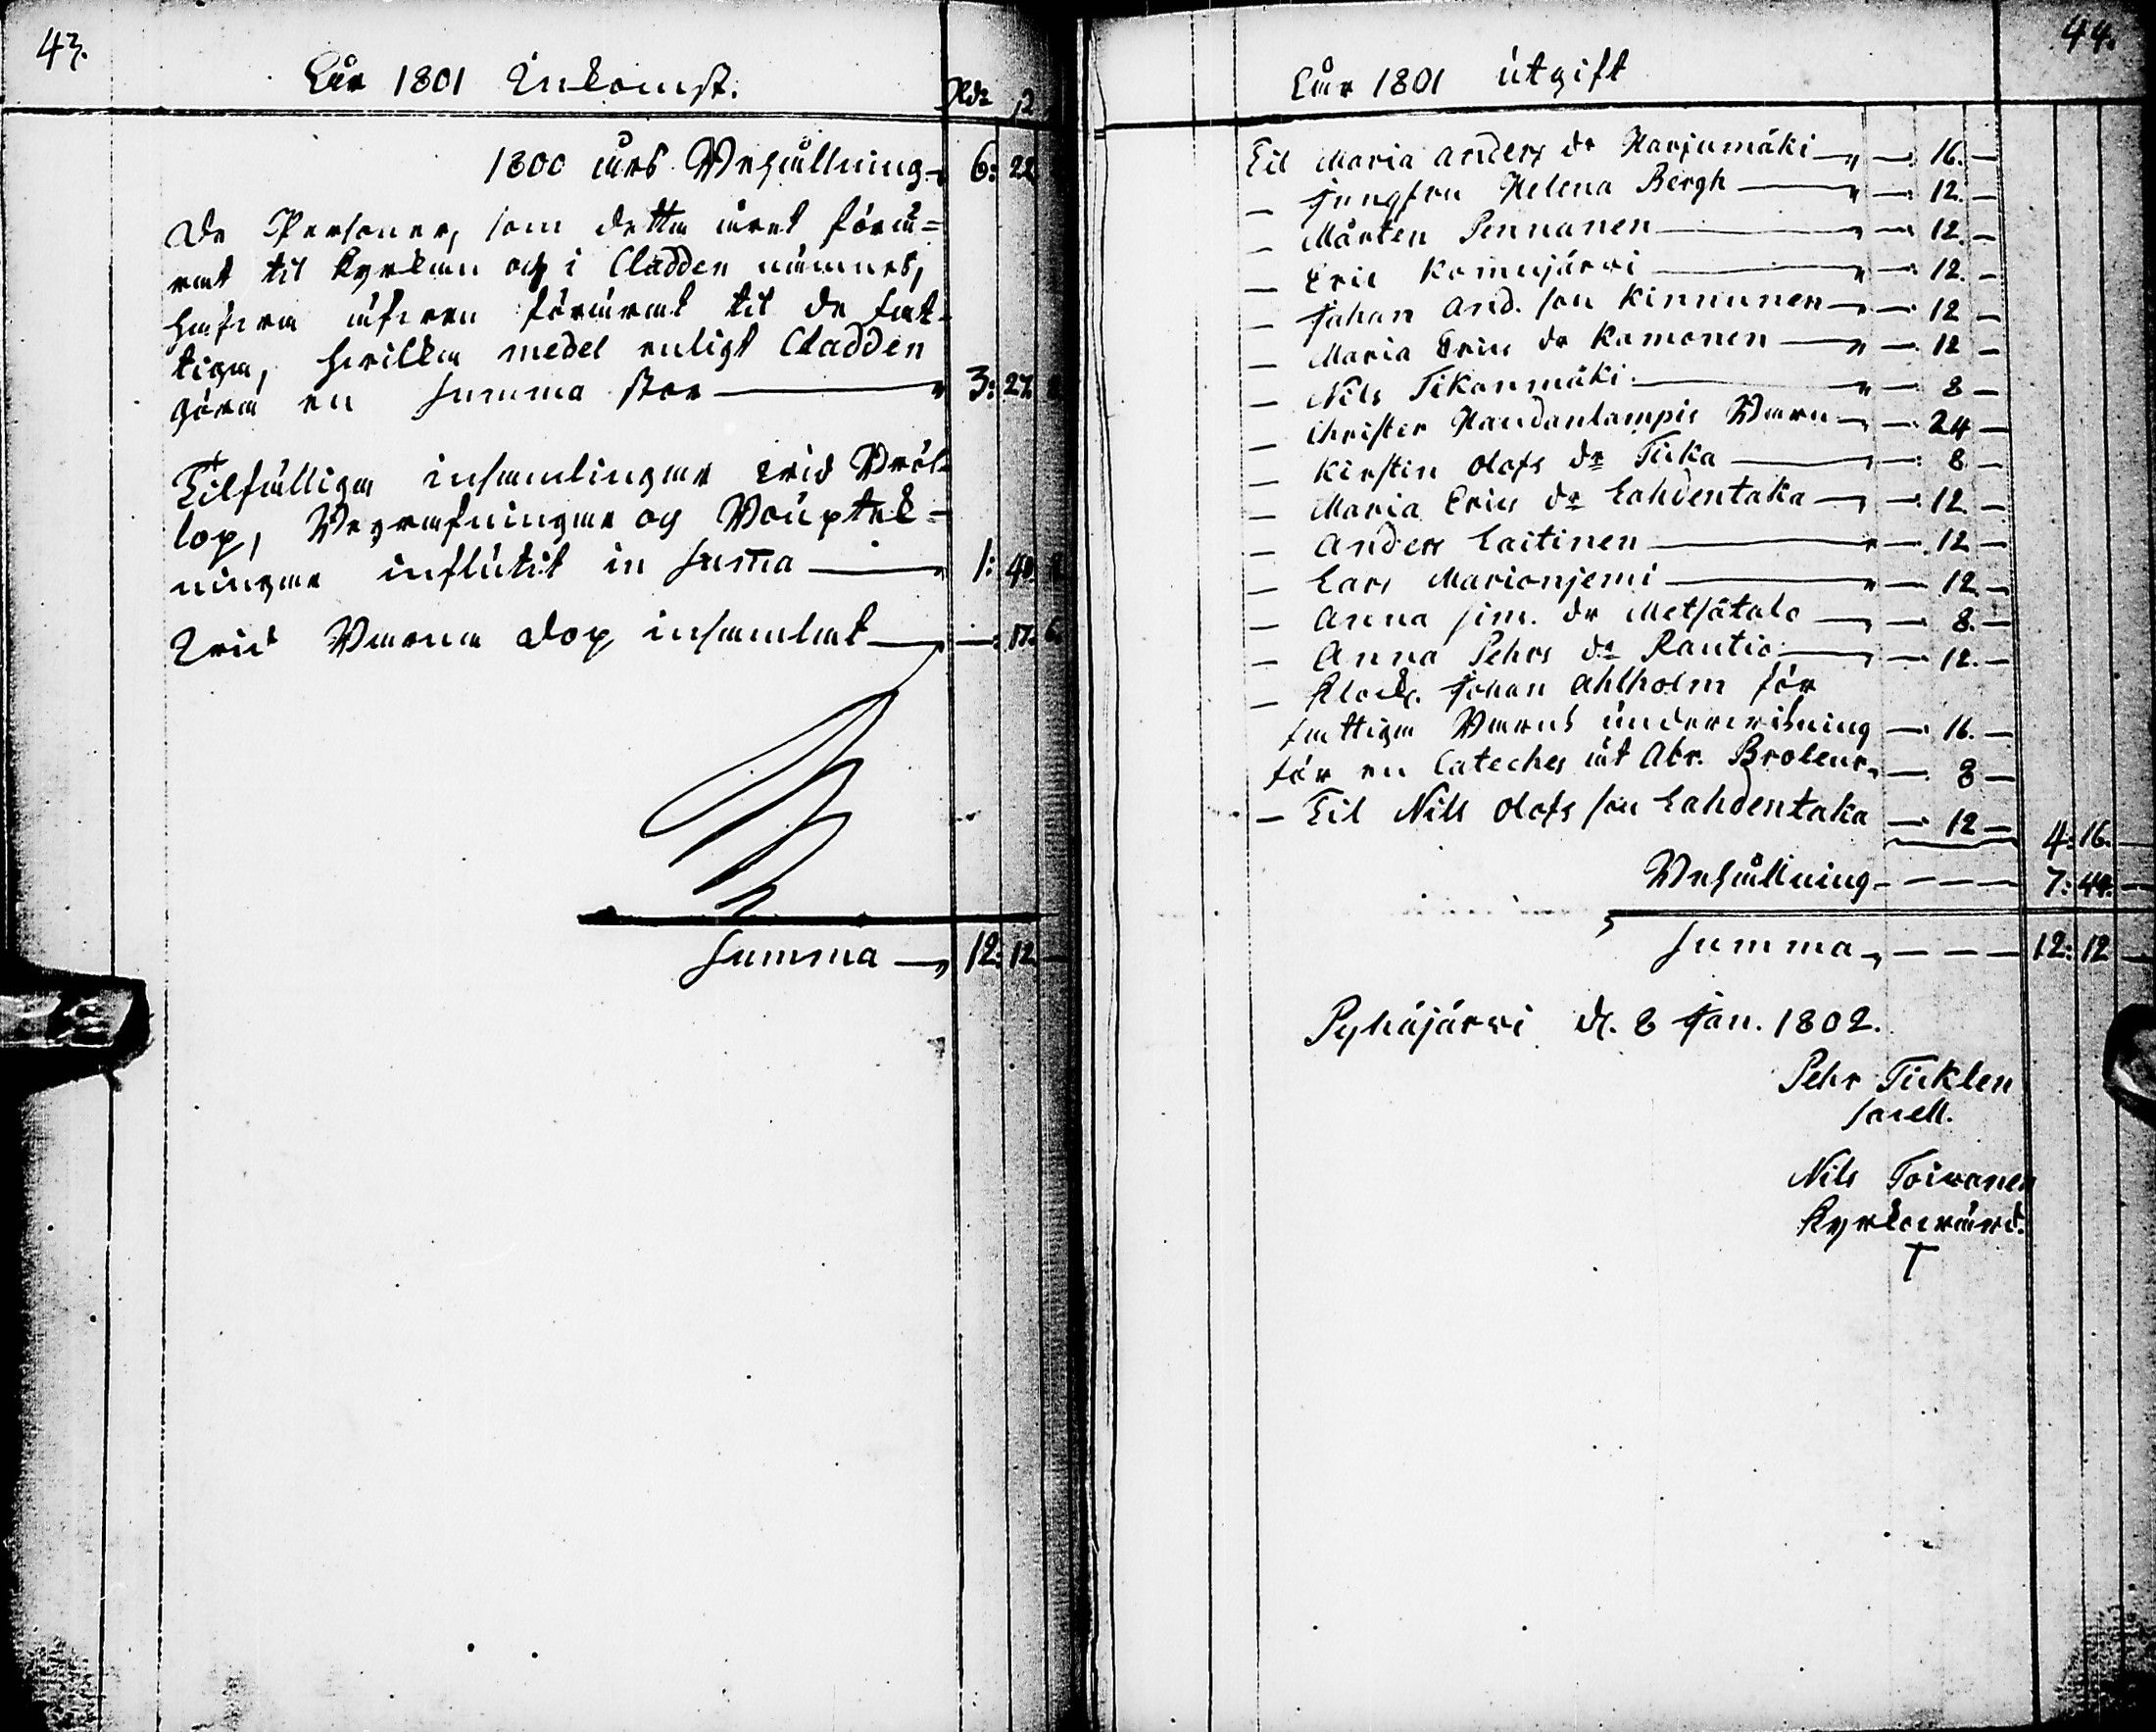 43.
Åhr 1801 Inkomst.
Rdr ß
1800 års Behållning 6: 22
De Personer, som detta året förä=
rat til kyrkan och i Cladden nämnes,
hafwa äfwen förärat til de fat-
tiga, hwilka medel enligt Cladden
göra en Summa stor 3: 27.
Tilfälliga insamlingar wid Bröl-
lop, Begrafningar och Barnptak=
ningar influtit in Summa 1: 40
Wid Barna Dop insamlat —. 17. 6.
Summa 12: 12. —
44.
Åhr 1801 utgift
Til Maria Anders dr Harjumäki — 16. —
— Jungfru Helena Bergh — 12. —
— Mårten Pennanen — 12. —
— Eric Komujärwi — 12. —
— Johan And. son Kinnunen — 12 —
— Maria Erics dr Kamonen — 12 —
— Nils Tikanmäki — 8 —
— Christer Haudanlampis Barn — 24 —
— Kirstin Olofs dr Tiika — 8 —
— Maria Erics dr Lahdentaka — 12 —
— Anders Laitinen — 12 —
— Lars Marionjemi — 12. —
— Anna Sim. dr Metsätalo — 8. —
— Anna Pehrs dr Rautio — 12. —
— Klock. Johan Ahlholm för
fattiga Barns underwisning — 16. —
för en Cateches åt Abr. Broleur — 8 —
— Til Nils Olofs son Lahdentaka — 12 — 4: 16. —
Behållning — — — 7: 44. —
Summa — — — 12: 12 —
Pyhäjärwi d. 8 Jan. 1802.
Pehr Ticklen
Sacell.
Nils Toiwanen
Kyrkowärd.
T